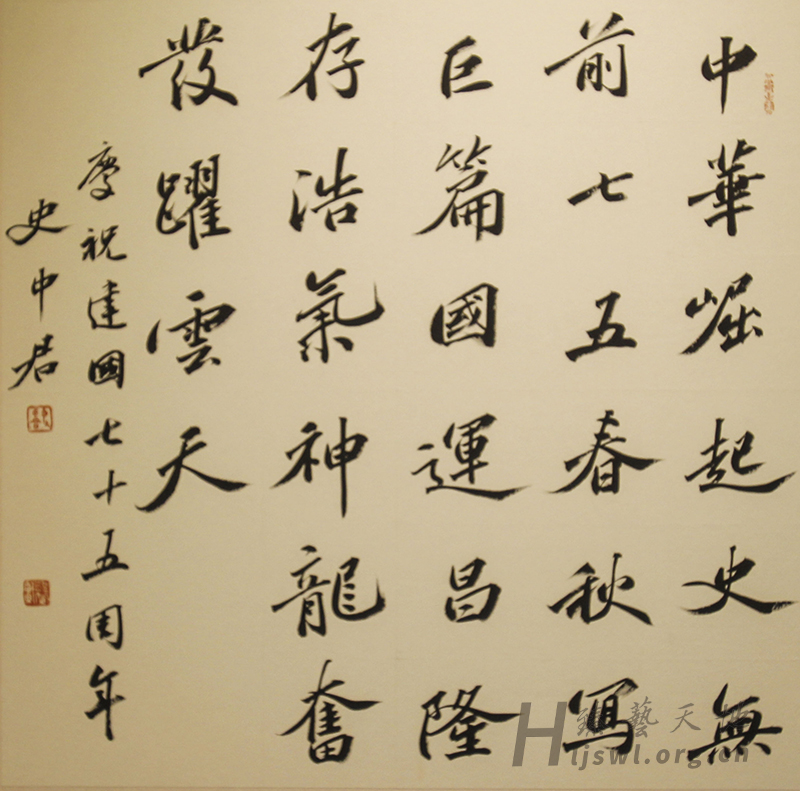 中華崛起史無
前七五春秋寫
巨篇國運昌隆
存浩氣神龍奮
發躍雲天
慶祝建國七十五周年
史中君
龍藝天地
hljswl.org.cn